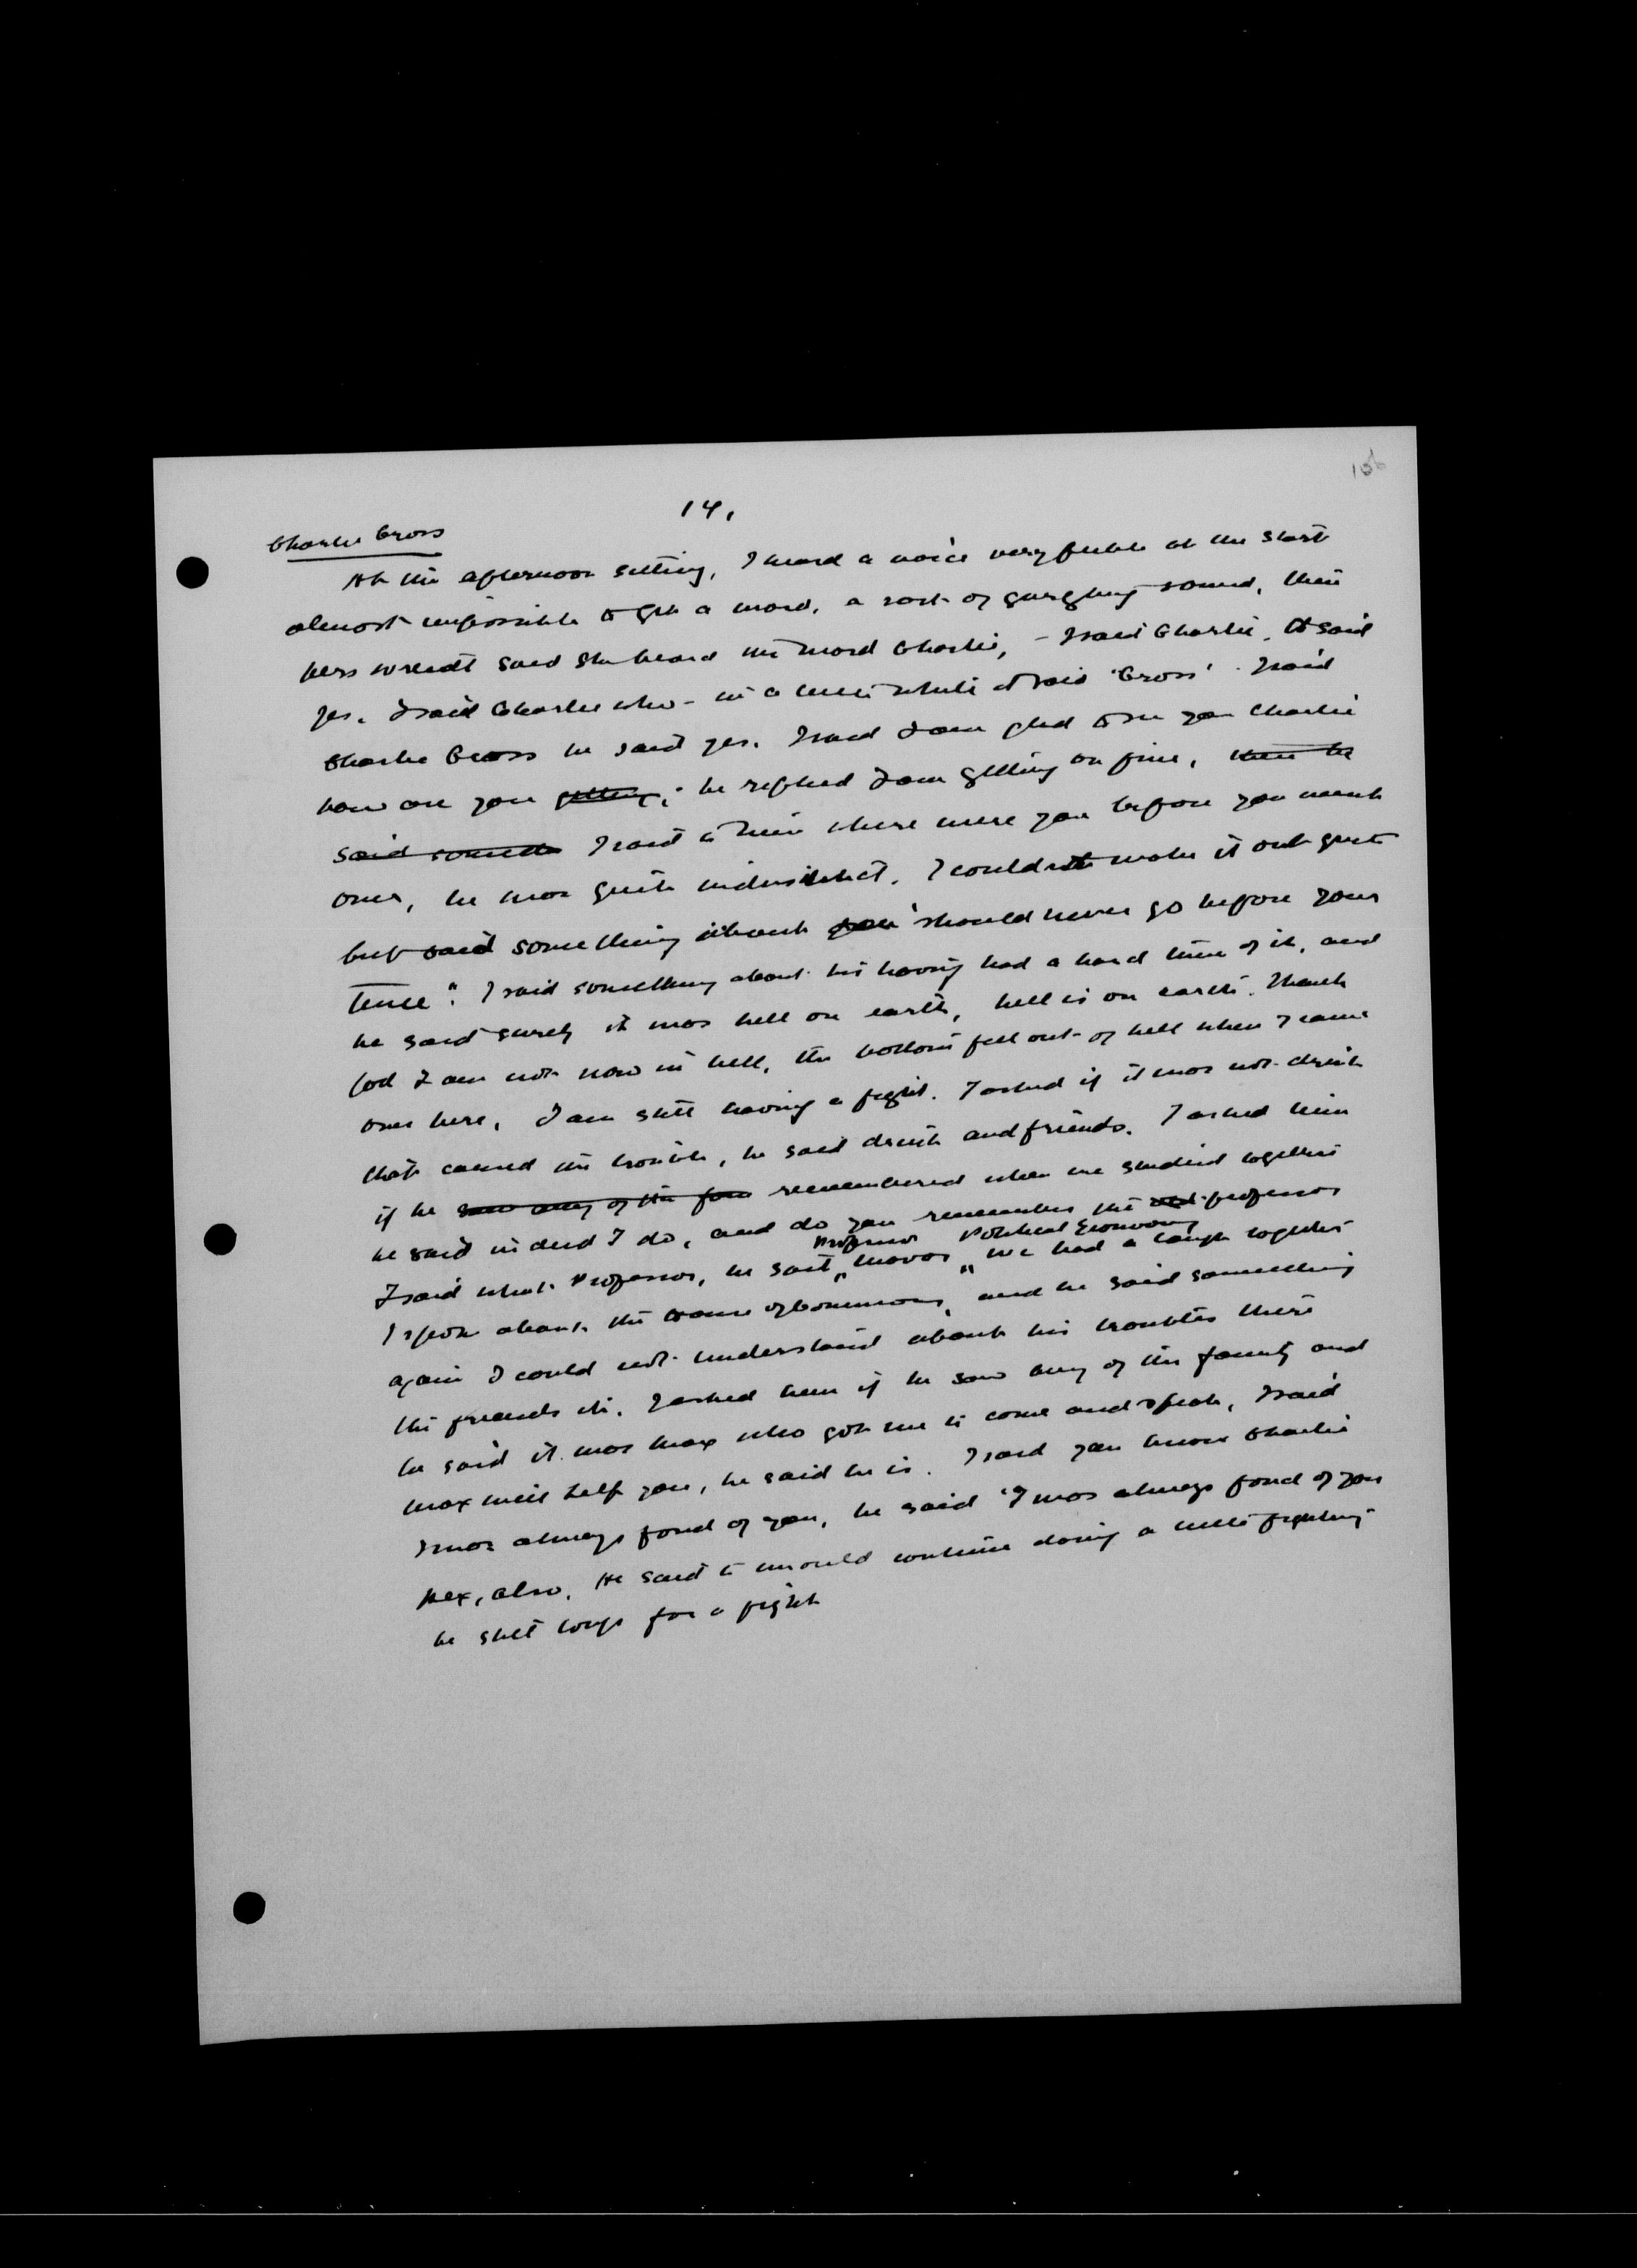 106
14.
Charlie Cross
At the afternoon sitting, I heard a voice very feeble at the start
almost impossible to get a word, a sort of gurgling sound, then
Mrs Wriedt said she heard the word Charlie, – I said Charlie. It said
yes. I said Charlie who – in a little while it said 'Cross'. I said
Charlie Cross he said yes. I said I am glad to see you Charlie
how are you getting; he replied I am getting on fine, then he
said I said to him where were you before you went
over, he was quite indistinct. I couldnt make it out quite
but said something about you 'should never go before your
time". I said something about his having had a hard time of it, and
he said surely it was hell on earth, hell is on earth. Thank
God I am not now in hell, the bottom fell out of hell when I came
over here, I am still having a fight. I asked if it was not drink
that caused the trouble, he said drink and friends. I asked him
if he saw any of the fam remembered when we studied together
he said indeed I do, and do you remember the old professor
Professor Political Economy
I said what Professor, he said "Mavor" we had a laugh together
I spoke about the House of Commons, and he said something
again I could not understand about his troubles there
the friends etc. I asked him if he saw any of the family and
he said it was Max who got me to come and speak, I said
Max will help you, he said he is. I said you know Charlie
I was always fond of you, he said 'I was always fond of you
Rex, also. He said I would continue doing a little fighting
he still longs for a fight